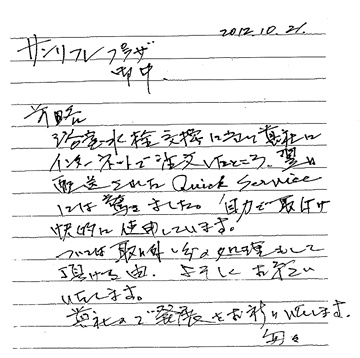 2012.10.21.
サンリフレプラザ
御中
前略
浴室水栓交換に当り貴社に
インターネットで注文したところ、翌日
配送されたQuick Service
には驚きました。自力で取付け
快的に使用しています。
ついては取り外し品の処理をして
頂ける由、よろしくお願い
いたします。
貴社のご発展をお祈りいたします。
匆々